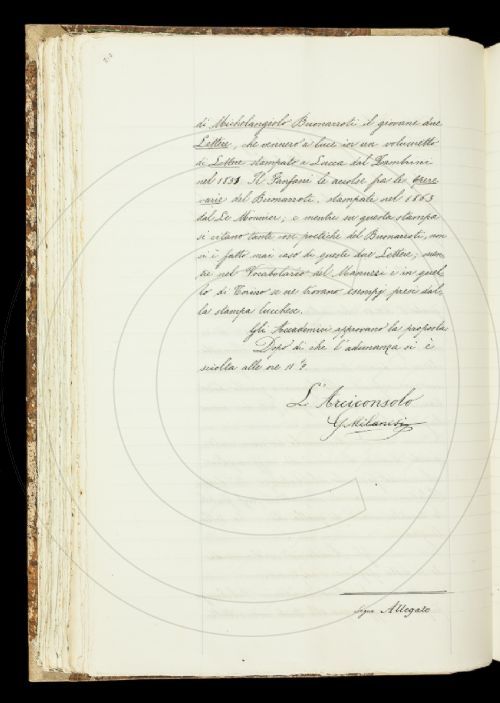 di Michelangiolo Buonarroti il giovane due
Lettere, che vennero a luce in un volumetto
di Lettere stampato a Lucca dal
nel 1853. Il Fanfani le accolse fra le Opere
varie del Buonarroti, stampate nel 1863
dal Le Monnier; e mentre su questa stampa
si citano tante cose poetiche del Buonarroti, non
si è fatto mai caso di queste due Lettere; men
tre nel Vocabolario del Manuzzi e in quel
lo di Torino se ne trovano esempj presi dal
la stampa lucchese.
Gli Accademici approvano la proposta
Dopo di che l'adunanza si è
sciolta alle ore 11
L'Arciconsolo
G Milanesi
segue Allegato